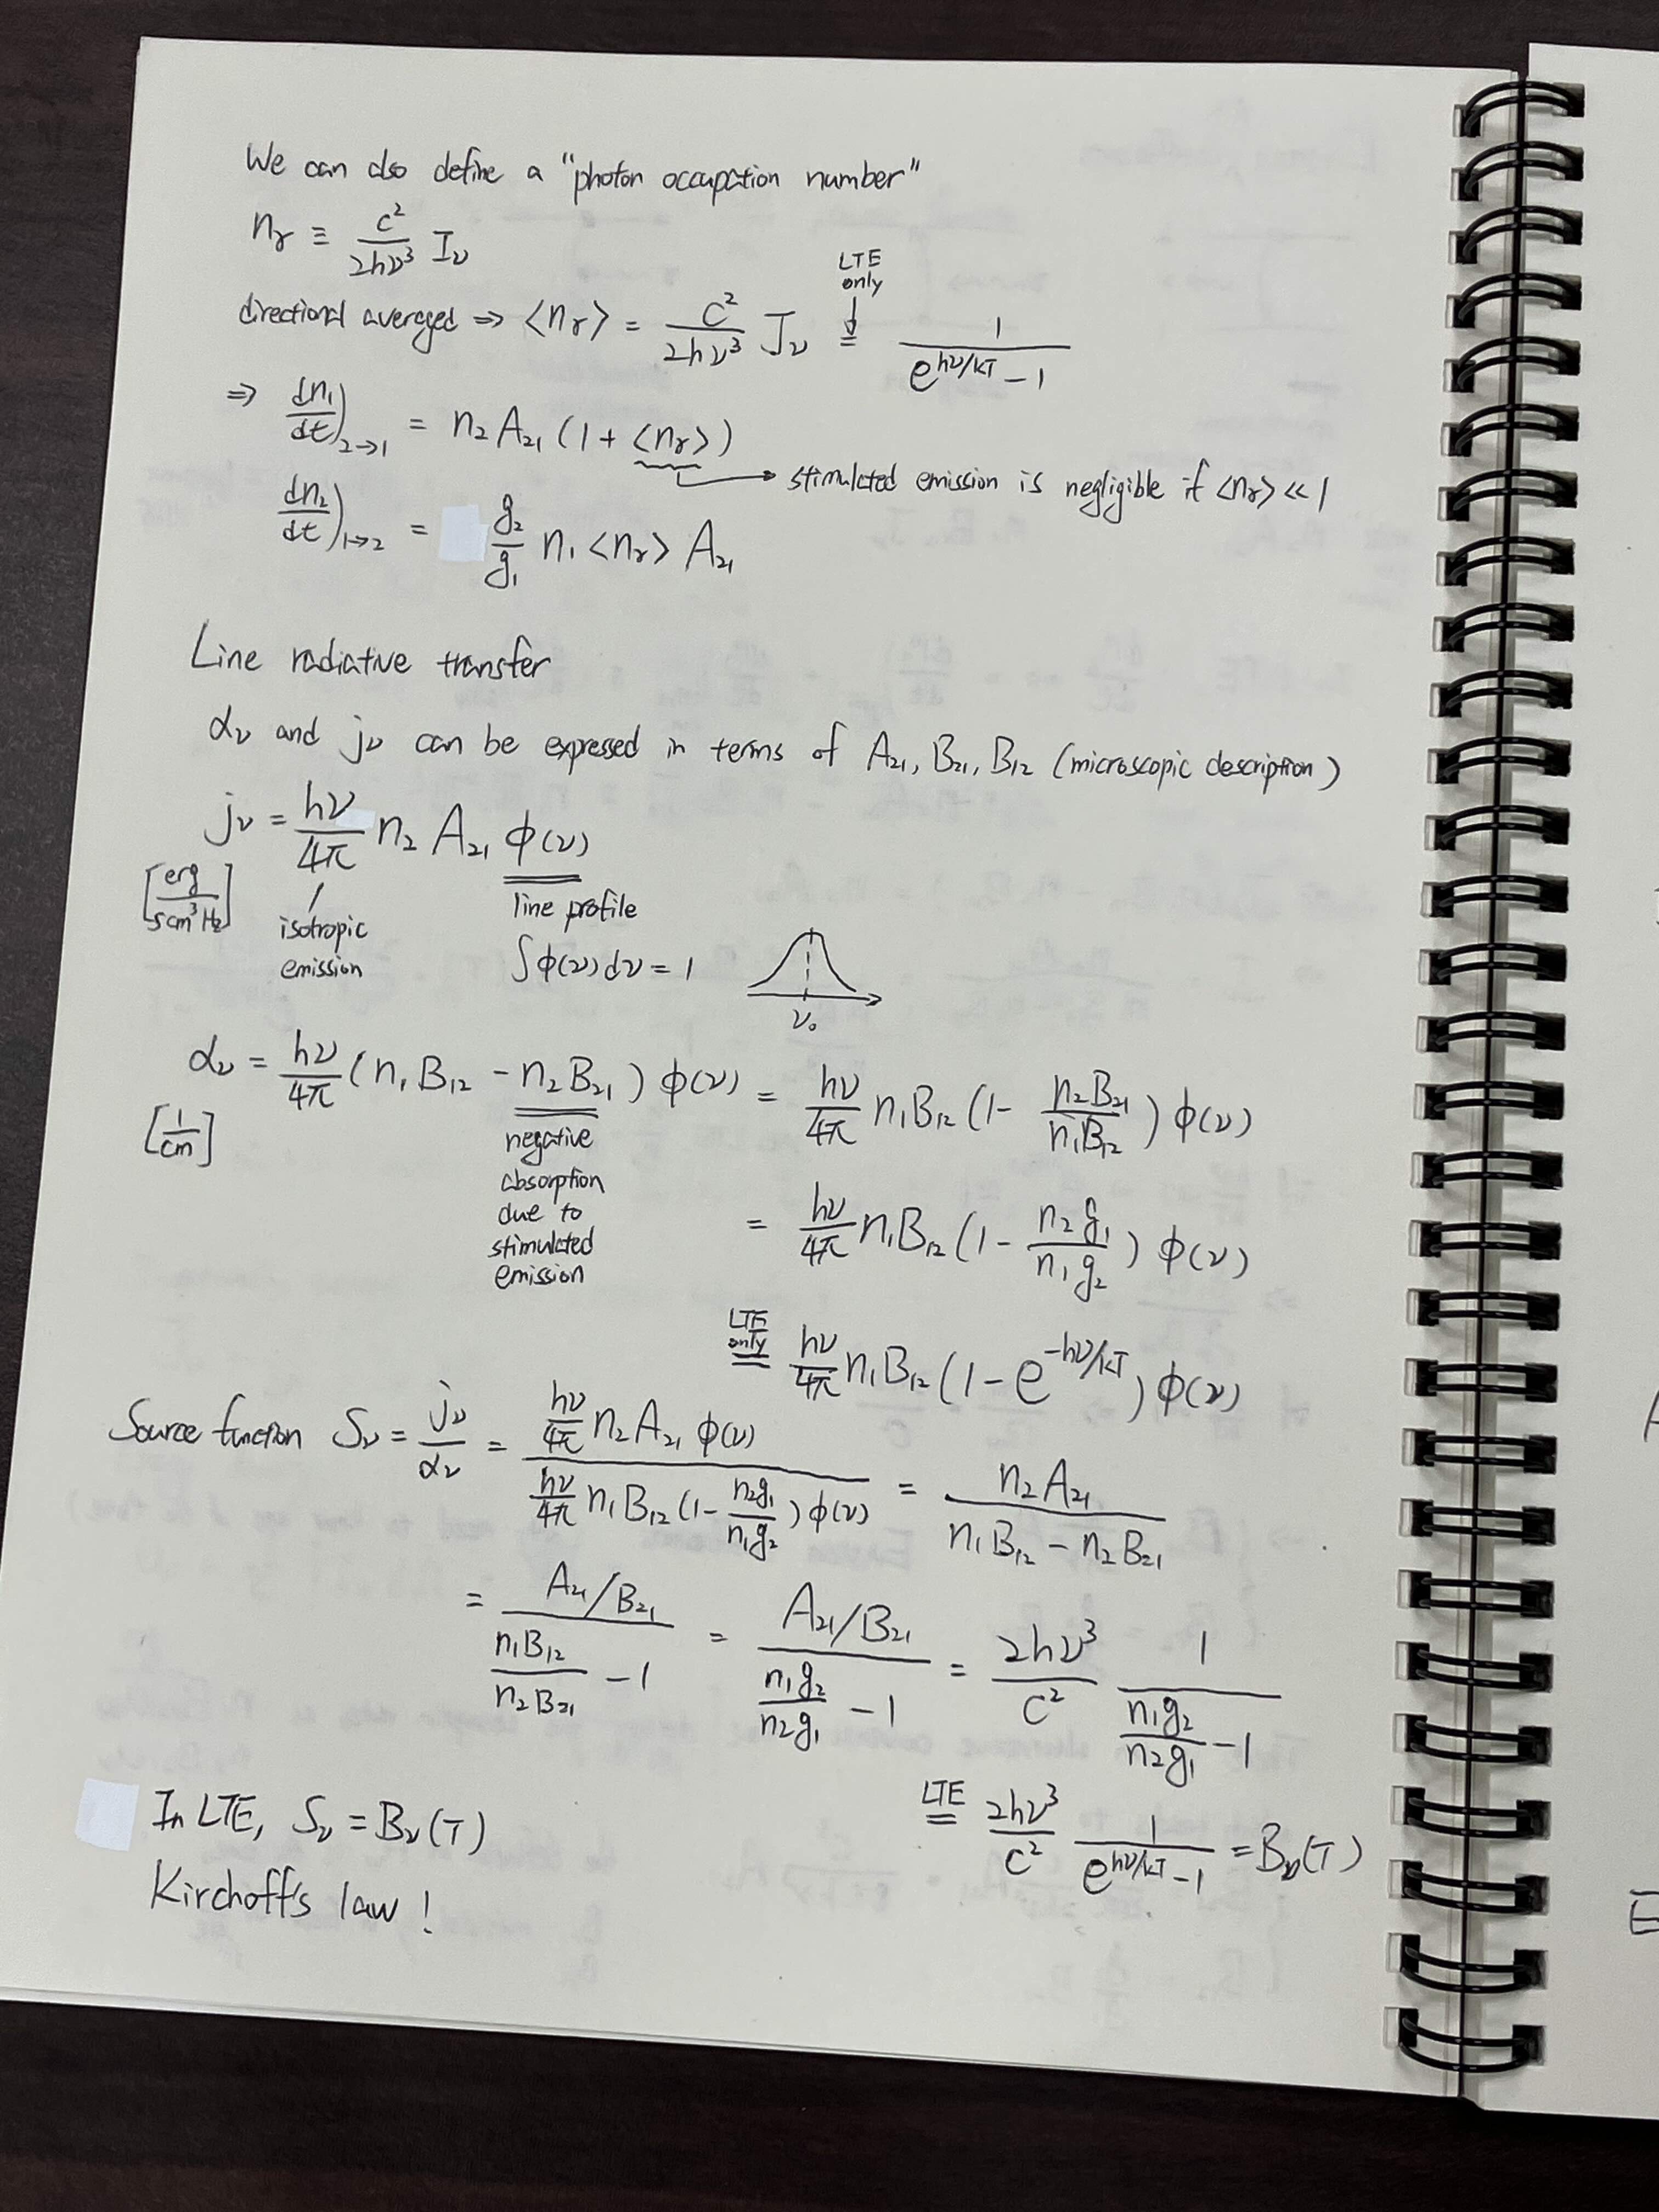 We can also define a "photon occupation number"
n_γ ≡ c²/2hν³ I_ν
LTE only ↓
directional averaged ⇒ <n_γ> = c²/2hν³ J_ν = 1/(e^{hν/kT} - 1)
⇒ dn₁/dt)_{2→1} = n₂ A₂₁ (1 + <n_γ>)
→ stimulated emission is negligible if <n_γ> << 1
dn₂/dt)_{1→2} = g₂/g₁ n₁ <n_γ> A₂₁
Line radiative transfer
α_ν and j_ν can be expressed in terms of A₂₁, B₂₁, B₁₂ (microscopic description)
j_ν = hν/4π n₂ A₂₁ φ(ν)
[erg/s cm³ Hz]
isotropic
emission
line profile
∫φ(ν)dν = 1
ν₀
α_ν = hν/4π (n₁B₁₂ - n₂B₂₁) φ(ν) = hν/4π n₁B₁₂ (1 - n₂B₂₁/n₁B₁₂) φ(ν)
[1/cm]
negative
absorption
due to
stimulated
emission
= hν/4π n₁B₁₂ (1 - n₂g₁/n₁g₂) φ(ν)
LTE only = hν/4π n₁B₁₂ (1 - e^{-hν/kT}) φ(ν)
Source function S_ν = j_ν/α_ν = (hν/4π n₂ A₂₁ φ(ν))/(hν/4π n₁B₁₂ (1 - n₂g₁/n₁g₂) φ(ν)) = n₂A₂₁/(n₁B₁₂ - n₂B₂₁)
= (A₂₁/B₂₁)/(n₁B₁₂/n₂B₂₁ - 1) = (A₂₁/B₂₁)/(n₁g₂/n₂g₁ - 1) = 2hν³/c² 1/(n₁g₂/n₂g₁ - 1)
LTE = 2hν³/c² 1/(e^{hν/kT} - 1) = B_ν(T)
In LTE, S_ν = B_ν(T)
Kirchoff's law !